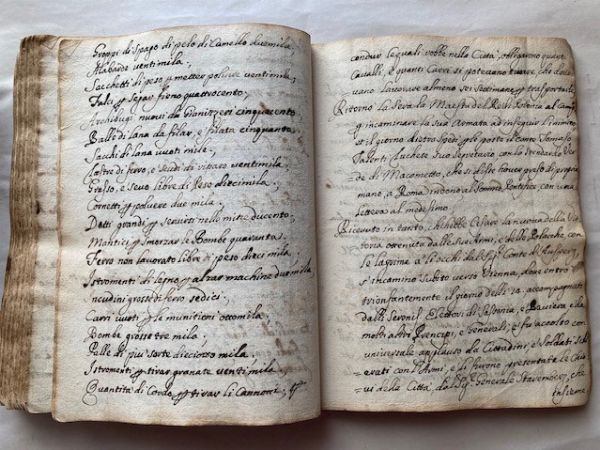 Groppi di Spago di pelo di Camello due mila;
Alabarde ventimila;
Sacchetti di peso p metter polvere ventimila;
Falci p segar fieno quattrocento;
Archibugi nuovi da Gianizzeri cinquecento
Balle di lana da filar, e filata cinquanta
Sacchi di lana vuoti mila;
Lastre di ferro, e scudi di vitaro ventimila;
Grasso, e sevo libre di peso diecimila
Cornetti p polvere due mila;
Detti grandi p servirsi nelle mine ducento;
Mantici p smorzar le Bombe quaranta;
Ferro non lavorato libre di peso dieci mila;
Istromenti di legno p alzar machine due milla
Incudini grosse di ferro sedeci;
Carri vuoti p le munitioni ottomila
Bombe grosse tre mila;
Palle di più sorte dieciotto mila
Istromenti p tirar granate ventimila;
Quantità di Corde p tirar li Cannoni;
condur le quali robbe nella Città, obligarono quanti
Cavalli, e quanti Carri si potevano havere, che do=
vano lavorare almeno sei settimane p trasportarle
Ritornò la sera la Maestà del Rè di Polonia al Campo
p incaminare la sua Armata ad inseguir l'inimico
et il giorno dietro spedì p le poste il Conte Tomaso
Talenti Luchese suo Segretario con lo stendardo Ver=
de di Maometto, che si disse trovar preso di propria
mano, a Roma in dono al Sommo Pontefice con una
lettera al medesimo
Ricevuto in tanto, ch'hebbe Cesare la nuova della Vit=
toria ottenuta dalle Sue Armi, e dalle Polacche, con
le lagrime à gl'occhi dal Sig. Conte d'
s'incaminò subito verso Vienna, dove entrò
trionfantemente il giorno delli 14 accompagnato
dalli Serenis. Elettori di Sassonia, e Baviera, e da
molti altri Prencipi, e Generali, e fù accolto con
universale applauso da Cittadini, e Soldati, schi
=erati con l'Armi, e li furono presentate le Chia
=vi della Città dal Sig. Generale Staremberg, che
insieme